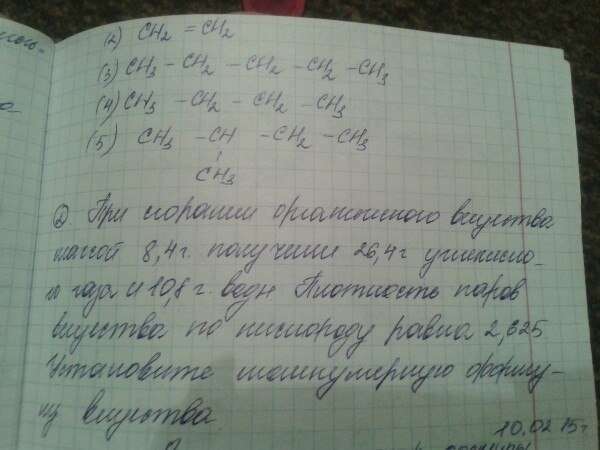 (2) CH2 = CH2
(3) CH3 - CH2 - CH2 - CH2 - CH3
(4) CH3 - CH2 - CH2 - CH3
(5) CH3 - CH - CH2 - CH3
CH3
2. При сгорании органического вещества
массой 8,4г. получили 26,4г углекисло-
го газа и 10,8 г. воды Плотность паров
вещества по кислороду равна 2,625
Установите молекулярную форму-
лу вещества.
10.02 15г